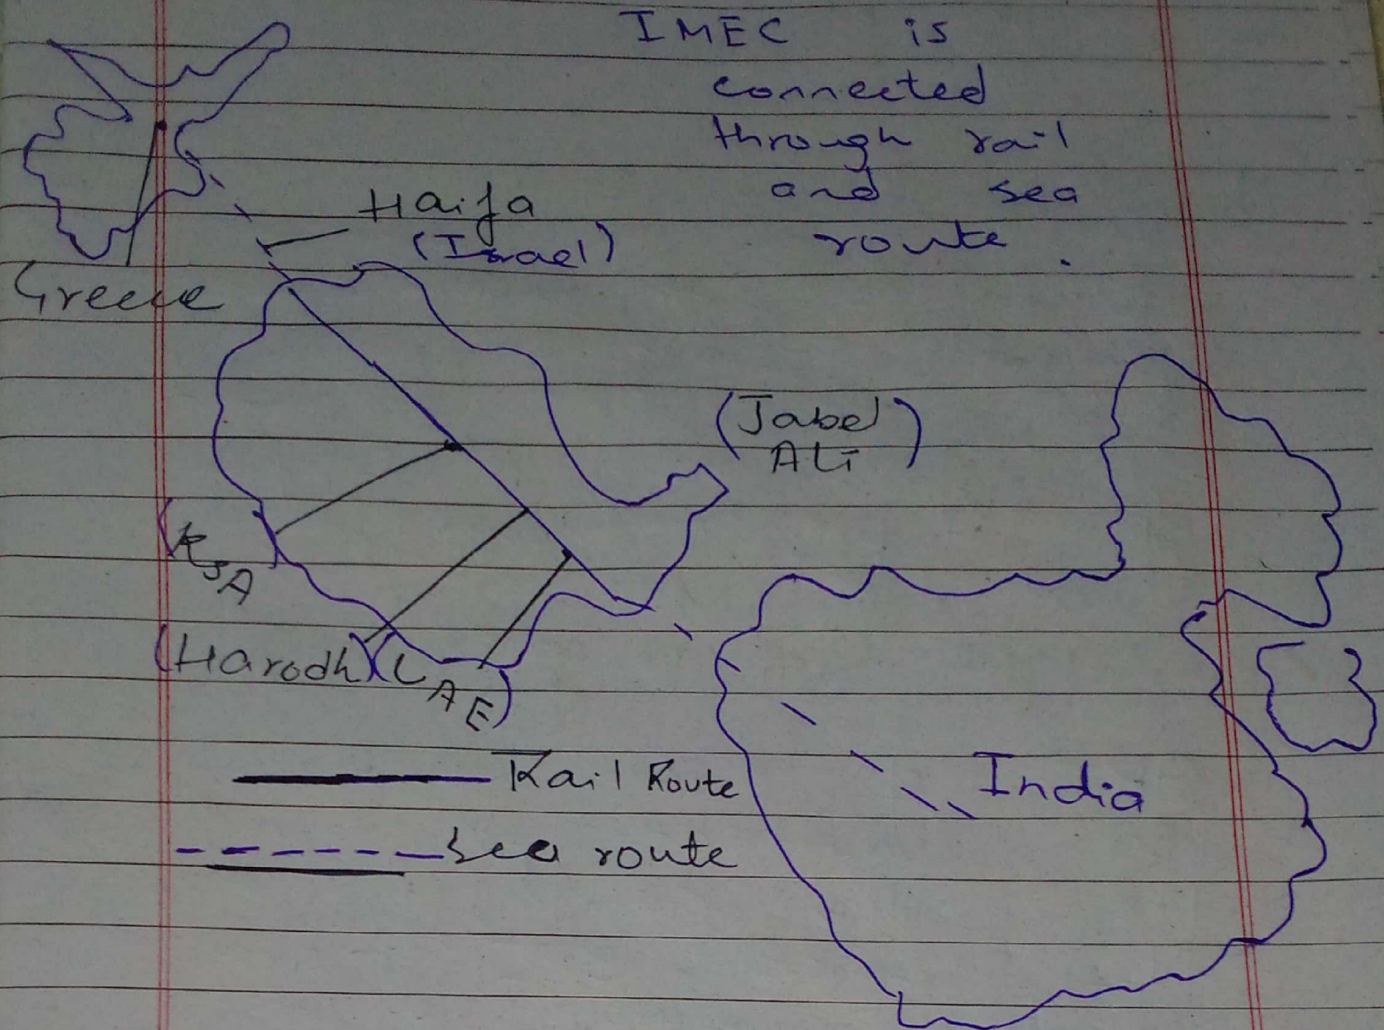 IMEC is
connected
through rail
and sea
route.
Haifa
(Israel)
Greece
(Jabel
Ali)
(KSA
(Harodh)(UAE)
India
Rail Route
Sea route